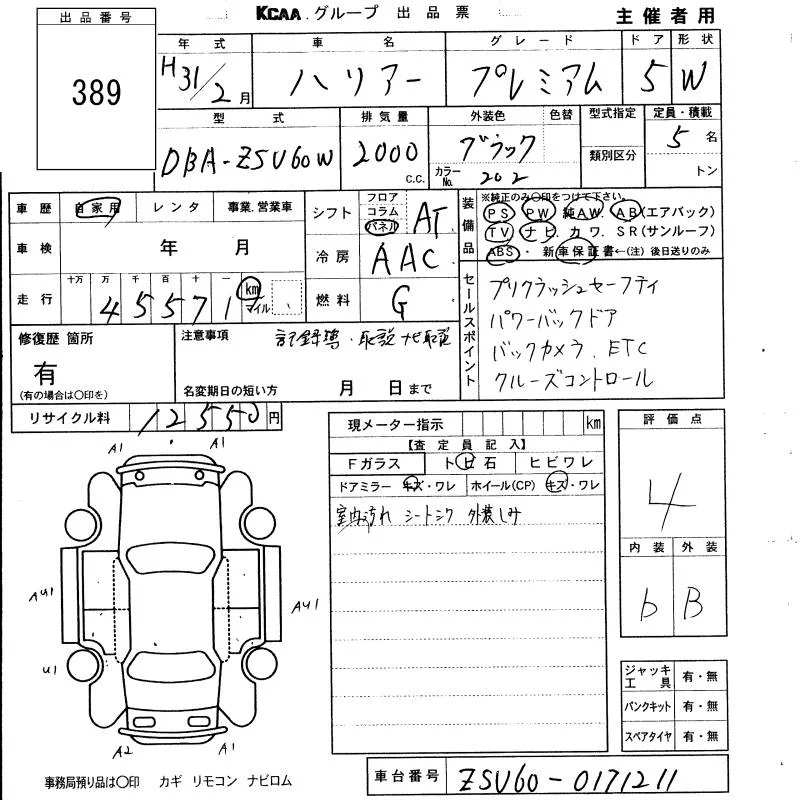 KCAA.グループ 出品票
主催者用
出品番号
389
年式 車名 グレード ドア 形状
H31/2月 ハリアー プレミアム 5 W
型式 排気量 外装色 色替 型式指定 定員・積載
DBA-ZSU60W 2000 c.c. ブラック 5名
類別区分 トン
カラーNo. 202
車歴 自家用 レンタ 事業.営業車
シフト フロア コラム パネル AT
装備品
※純正のみ〇印をつけて下さい。
PS PW 純AW. AB(エアバック)
TV ナビ. カワ. SR(サンルーフ)
ABS・ 新車保証書←(注) 後日送りのみ
車検 年 月
冷房 AAC
走行 十万 万 千 百 十 一
45571 km マイル
燃料 G
セールスポイント
プリクラッシュセーフティ
パワーバックドア
バックカメラ. ETC
クルーズコントロール
修復歴 箇所
有
(有の場合は〇印を)
注意事項 記録簿・取説 ナビ取説
名変期日の短い方 月 日まで
リサイクル料 12550円
現メーター指示 km
【査定員記入】
Fガラス トビ石 ヒビワレ
ドアミラー キズ・ワレ ホイール(CP) キズ・ワレ
室内汚れ シートシワ
評価点
4
内装 外装
b B
A1 A1
AU1 AU1
U1
A2 A1
ジャッキ工具 有・無
パンクキット 有・無
スペアタイヤ 有・無
事務局預り品は〇印 カギ リモコン ナビロム
車台番号 ZSU60-0171211